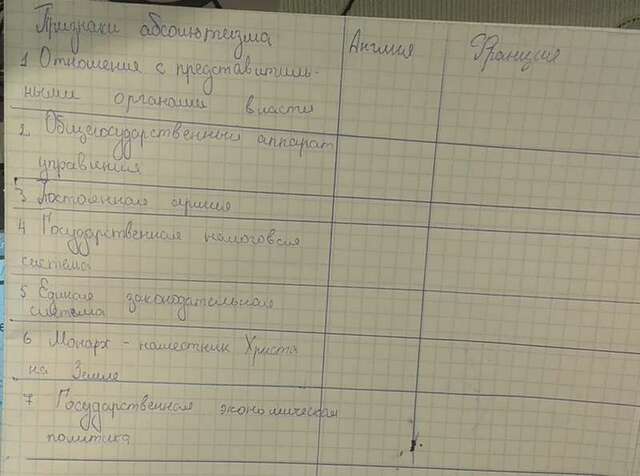 Признаки абсолютизма
Англия
Франция
1 Отношения с представитиль-
ными органами власти
2 Общегосударственный аппарат
управления
3 Постоянная армия
4 Государственная налоговая
система
5 Единая законодательная
система
6 Монарх - наместник Христа
на Земле
7 Государственная экономическая
политика